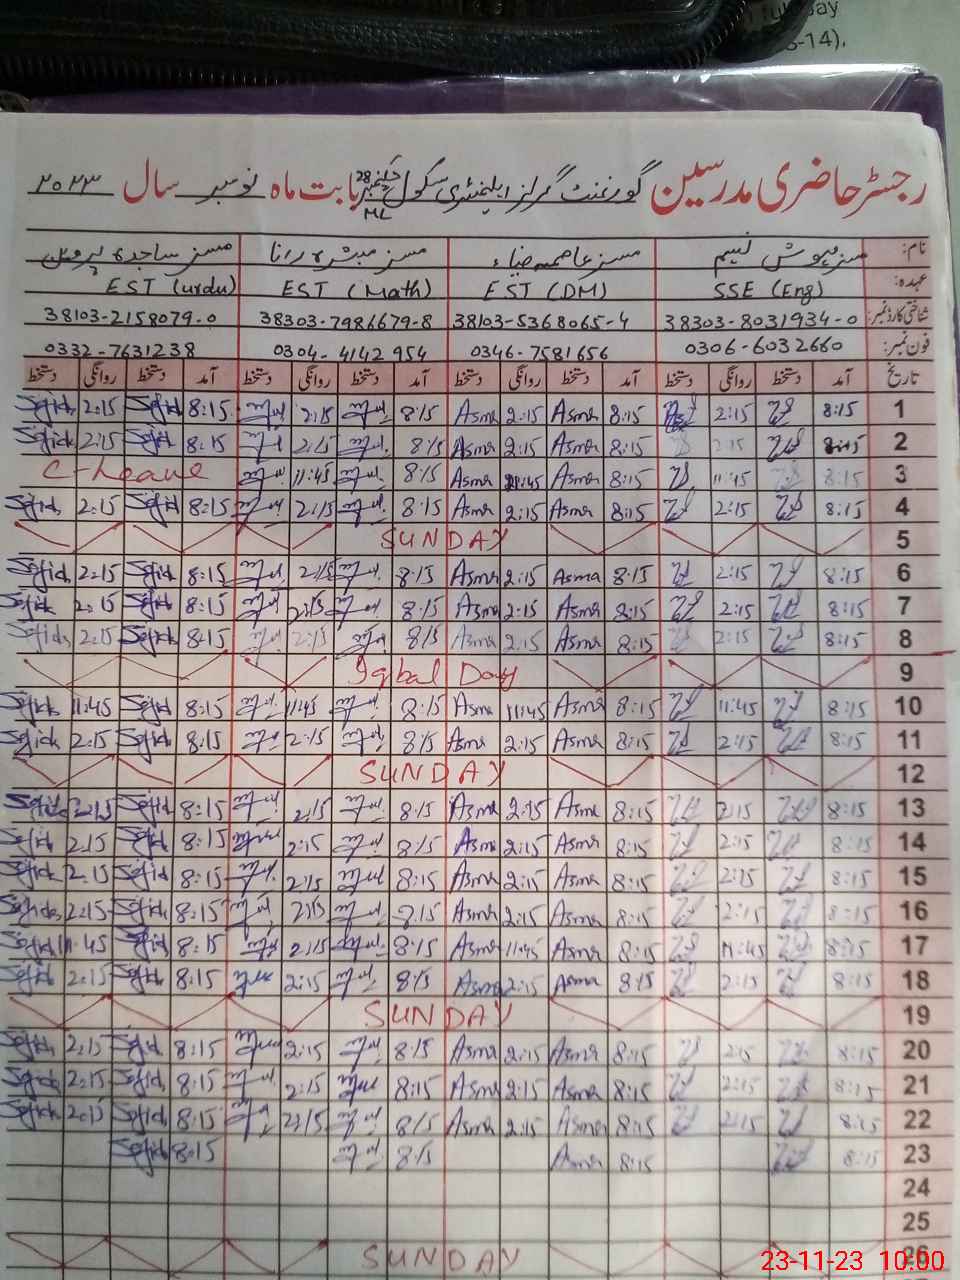 day
-14).
رجسٹر حاضری مدرسین گورنمنٹ گرلز ایلیمنٹری سکول چک نمبر 28 ML بابت ماہ نومبر سال ۲۰۲۳
نام: مسز مہوش نسیم مسز عاصمہ ضیاء مسز مبشرہ رانا مسز ساجدہ پروین
عہدہ: SSE (Eng) EST (DM) EST (Math) EST (urdu)
شناختی کارڈ نمبر: 38303-8031934-0 38103-5368065-4 38303-7986679-8 38103-2158079-0
فون نمبر: 0306-6032660 0346-7581656 0304-4142954 0332-7631238
تاریخ آمد دستخط روانگی دستخط آمد دستخط روانگی دستخط آمد دستخط روانگی دستخط آمد دستخط روانگی دستخط
1 8:15 2:15 8:15 Asma 2:15 Asma 8:15 2:15 8:15 Sajid 2:15 Sajid
2 8:15 2:15 8:15 Asma 2:15 Asma 8:15 2:15 8:15 Sajid 2:15 Sajid
3 8:15 11:45 8:15 Asma 11:45 Asma 8:15 11:45 C-Leave
4 8:15 2:15 8:15 Asma 2:15 Asma 8:15 2:15 8:15 Sajid 2:15 Sajid
5 SUNDAY
6 8:15 2:15 8:15 Asma 2:15 Asma 8:15 2:15 8:15 Sajid 2:15 Sajid
7 8:15 2:15 8:15 Asma 2:15 Asma 8:15 2:15 8:15 Sajid 2:15 Sajid
8 8:15 2:15 8:15 Asma 2:15 Asma 8:15 2:15 8:15 Sajid 2:15 Sajid
9 Iqbal Day
10 8:15 11:45 8:15 Asma 11:45 Asma 8:15 11:45 8:15 Sajid 11:45 Sajid
11 8:15 2:15 8:15 Asma 2:15 Asma 8:15 2:15 8:15 Sajid 2:15 Sajid
12 SUNDAY
13 8:15 2:15 8:15 Asma 2:15 Asma 8:15 2:15 8:15 Sajid 2:15 Sajid
14 8:15 2:15 8:15 Asma 2:15 Asma 8:15 2:15 8:15 Sajid 2:15 Sajid
15 8:15 2:15 8:15 Asma 2:15 Asma 8:15 2:15 8:15 Sajid 2:15 Sajid
16 8:15 2:15 8:15 Asma 2:15 Asma 8:15 2:15 8:15 Sajid 2:15 Sajid
17 8:15 11:45 8:15 Asma 11:45 Asma 8:15 2:15 8:15 Sajid 11:45 Sajid
18 8:15 2:15 8:15 Asma 2:15 Asma 8:15 2:15 8:15 Sajid 2:15 Sajid
19 SUNDAY
20 8:15 2:15 8:15 Asma 2:15 Asma 8:15 2:15 8:15 Sajid 2:15 Sajid
21 8:15 2:15 8:15 Asma 2:15 Asma 8:15 2:15 8:15 Sajid 2:15 Sajid
22 8:15 2:15 8:15 Asma 2:15 Asma 8:15 2:15 8:15 Sajid 2:15 Sajid
23 8:15 8:15 Asma 8:15 8:15 Sajid
24
25
26 SUNDAY
23-11-23 10:00